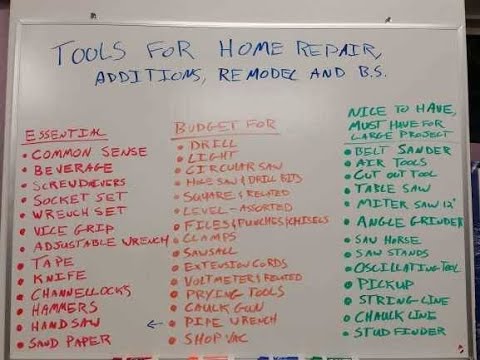 TOOLS FOR HOME REPAIR,
ADDITIONS, REMODEL AND B.S.
ESSENTIAL
• COMMON SENSE
• BEVERAGE
• SCREWDRIVERS
• SOCKET SET
• WRENCH SET
• VICE GRIP
• ADJUSTABLE WRENCH
• TAPE
• KNIFE
• CHANNELLOCKS
• HAMMERS
• HANDSAW
• SAND PAPER
BUDGET FOR
• DRILL
• LIGHT
• CIRCULAR SAW
• HOLE SAW & DRILL BITS
• SQUARE & RELATED
• LEVEL - ASSORTED
• FILES & PUNCHES/CHISELS
• CLAMPS
• SAWSALL
• EXTENSION CORDS
• VOLTMETER & RELATED
• PRYING TOOLS
• CAULK GUN
← • PIPE WRENCH
• SHOP VAC
NICE TO HAVE,
MUST HAVE FOR
LARGE PROJECT
• BELT SANDER
• AIR TOOLS
• CUT OUT TOOL
• TABLE SAW
• MITER SAW 12"
• ANGLE GRINDER
• SAW HORSE
• SAW STANDS
• OSCILLATING TOOL
• PICKUP
• STRING LINE
• CHAULK LINE
• STUD FINDER